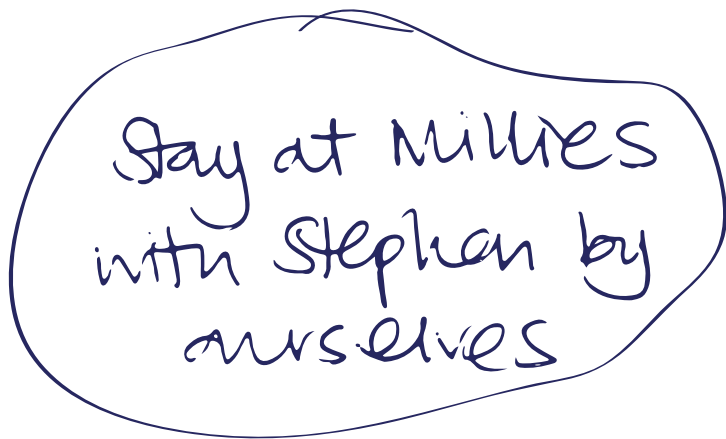 Stay at Millies
with Stephen by
ourselves